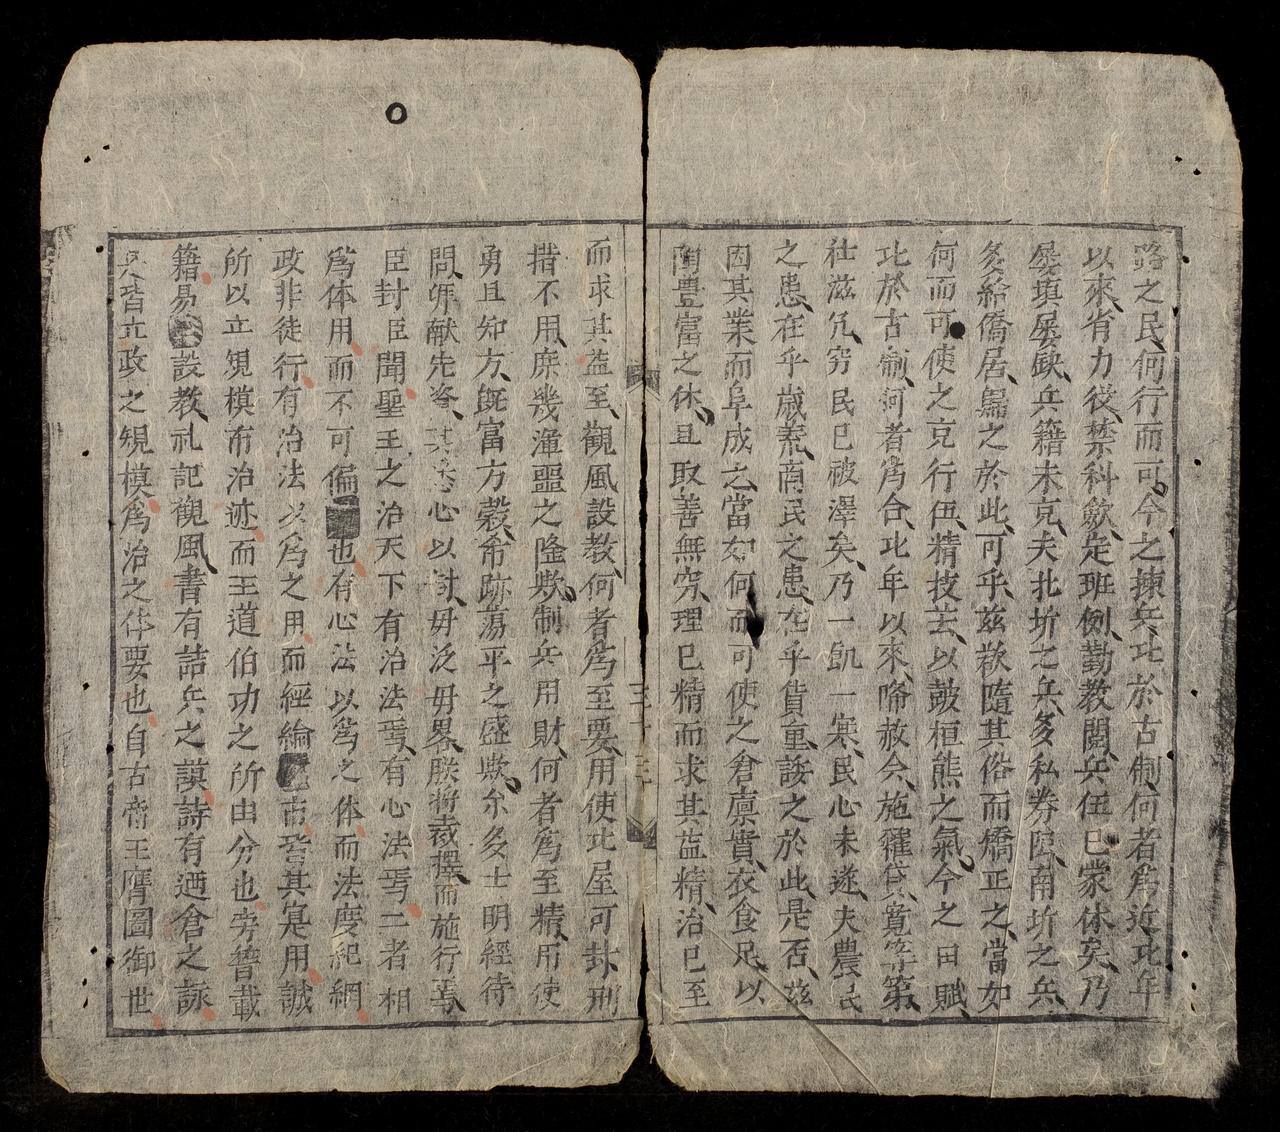 路之民何行而可今之揀兵比於古制何者爲近比年
以來省力役禁科歛定班例勤教閱兵伍已蒙休矣乃
屡填屡缺兵籍未克夫北圻之兵多私券陪南圻之兵
多給僑居歸之於此可乎茲欲隨其俗而矯正之當如
何而可使之克行伍精技芸以皷桓熊之氣今之田賦
比於古制河者爲合比年以來降赦令施糴貸寬等第
社滋冗穷民已被澤矣乃一飢一寒民心未遂夫農民
之患在乎歲荒商民之患在乎貨重諉之於此是否茲
因其業而阜成之當如何而可使之倉稟實衣食足以
闡豊富之休且取善無穷理已精而求其益精治已至
三十三
而求其益至觀風設教何者爲至要用使比屋可封刑
措不用庶幾渾噩之隆欤制兵用財何者爲至精用使
勇且知方既富方穀希跡蕩平之盛欤尓多士明經待
問舜献先资其悉心以對毋泛毋畧朕將裁擇而施行焉
臣封臣聞聖王之治天下有治法焉有心法焉二者相
爲体用而不可偏也有心法以爲之体而法度紀綱
政非徒行有治法以爲之用而經綸市皆其寔用誠
所以立規模布治迹而王道伯功之所由分也旁簪載
籍易設教礼記觀風書有詰兵之謨詩有廼倉之詠
是皆立政之規模爲治之体要也自古帝王膺圖御世